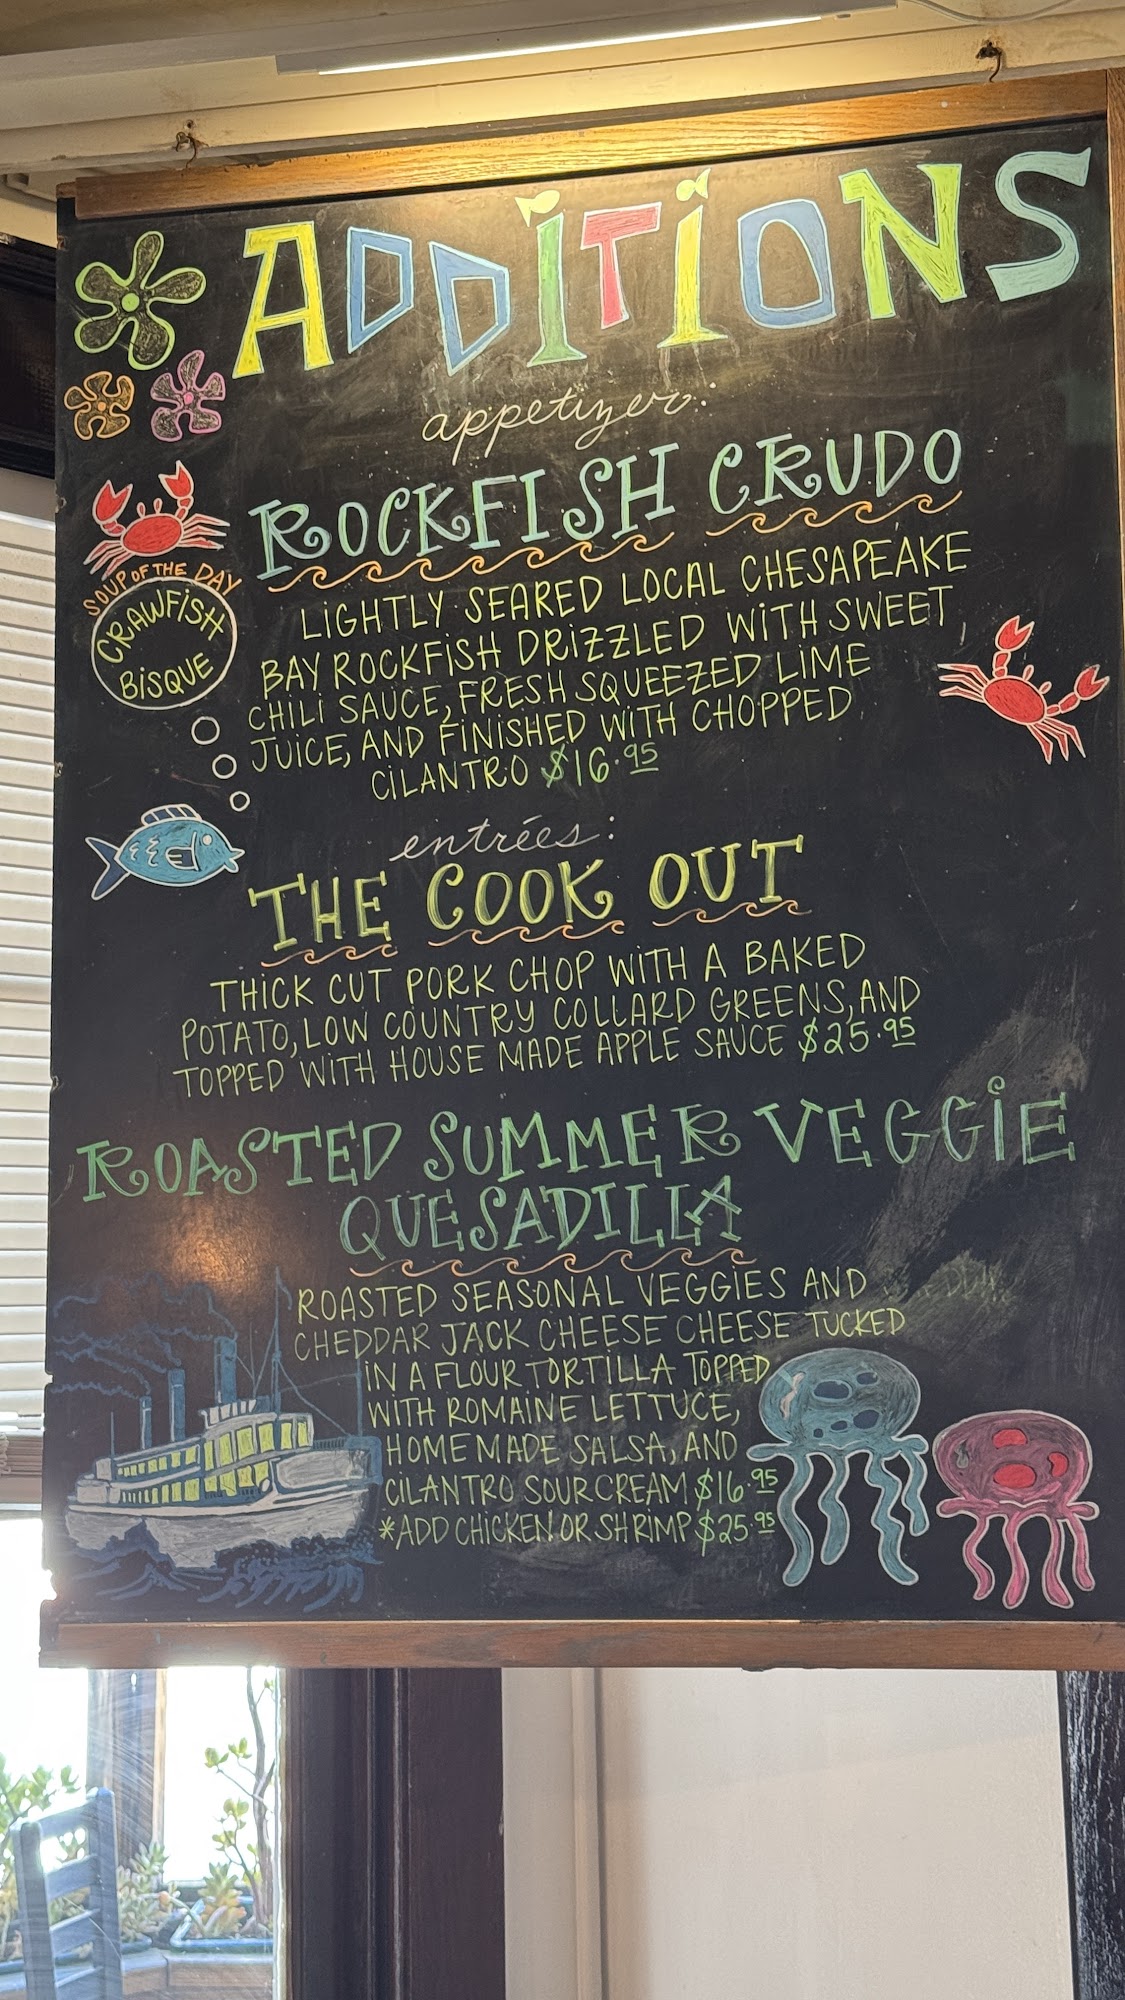 ADDITIONS
appetizer:
ROCKFISH CRUDO
LIGHTLY SEARED LOCAL CHESAPEAKE
BAY ROCKFISH DRIZZLED WITH SWEET
CHILI SAUCE, FRESH SQUEEZED LIME
JUICE, AND FINISHED WITH CHOPPED
CILANTRO $16.95
SOUP OF THE DAY
CRAWFISH
BISQUE
entrées:
THE COOK OUT
THICK CUT PORK CHOP WITH A BAKED
POTATO, LOW COUNTRY COLLARD GREENS, AND
TOPPED WITH HOUSE MADE APPLE SAUCE $25.95
ROASTED SUMMER VEGGIE
QUESADILLA
ROASTED SEASONAL VEGGIES AND
CHEDDAR JACK CHEESE CHEESE TUCKED
IN A FLOUR TORTILLA TOPPED
WITH ROMAINE LETTUCE,
HOMEMADE SALSA, AND
CILANTRO SOUR CREAM $16.95
*ADD CHICKEN OR SHRIMP $25.95